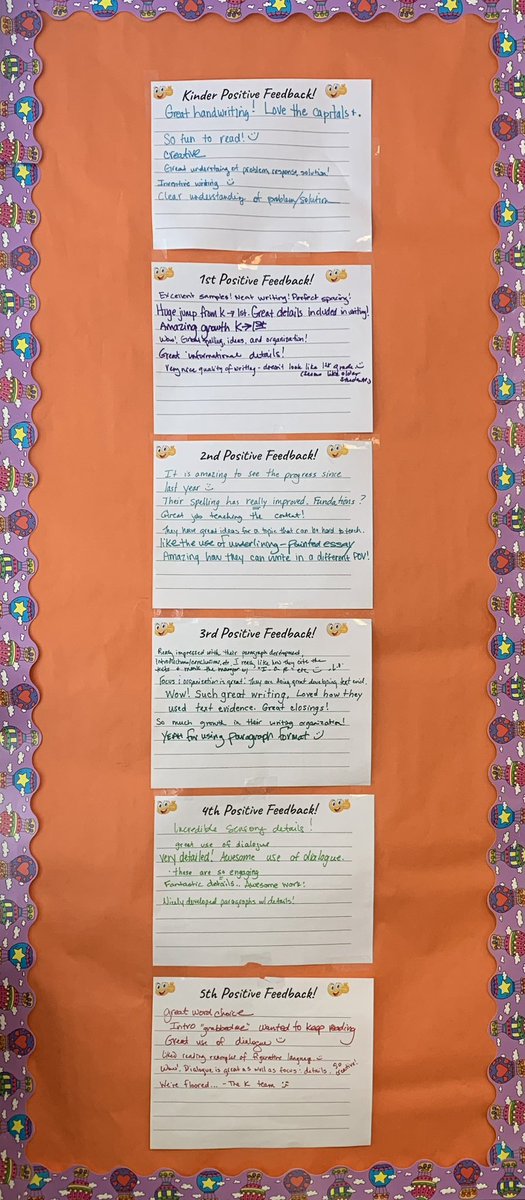 Kinder Positive Feedback!
Great handwriting! Love the capitals +.
So fun to read!
creative
Great understaing of problem, response, solution!
Inventive writing
Clear understanding of problem/solution
1st Positive Feedback!
Excellent samples! Neat writing! Perfect spacing!
Huge jump from K → 1st. Great details included in writing!
Amazing growth K → 1st
Wow! Great spelling, ideas, and organization!
Great informational details!
Very nice quality of writing - doesn't look like 1st grade
older
students
2nd Positive Feedback!
It is amazing to see the progress since
last year
Their spelling has really improved. Fundations?
Great job teaching the content!
They have great ideas for a topic that can be hard to teach.
like the use of underlining - painted essay
Amazing how they can write in a different POV!
3rd Positive Feedback!
Really impressed with their paragraph development,
I really like how they cite the
Focus & organization is great. They are doing great developing text evid.
Wow! Such great writing, Loved how they
used text evidence. Great closings!
So much growth in their writing organization!
YEAH for using paragraph format
4th Positive Feedback!
Incredible Sensory details!
great use of dialogue
very detailed! Awesome use of dialogue.
these are so engaging
Fantastic details... Awesome work!
Nicely developed paragraphs w/ details!
5th Positive Feedback!
great word choice
Intro "grabbed me" wanted to keep reading
Great use of dialogue
Liked reading examples of figurative language
Wow! Dialogue is great as well as focus + details. So creative!
We're floored... - The K team